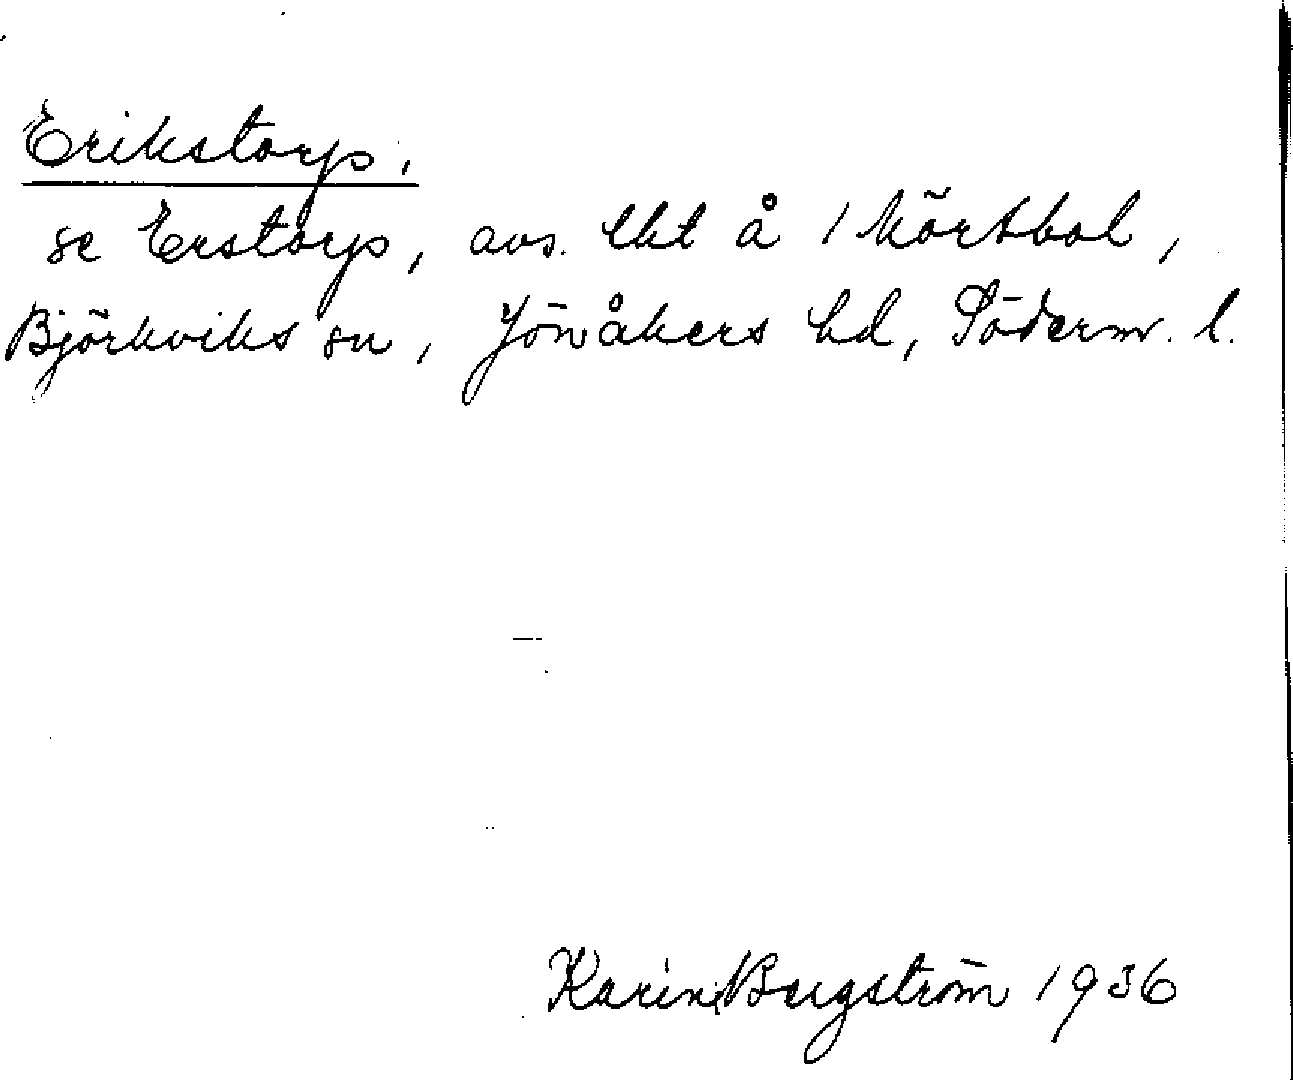 Erikstorp,
se Erstorp, avs. lht å 1 Mörtbol,
Björkviks sn, Jönåkers hd, Söderm. l.
Karin Bergström 1936